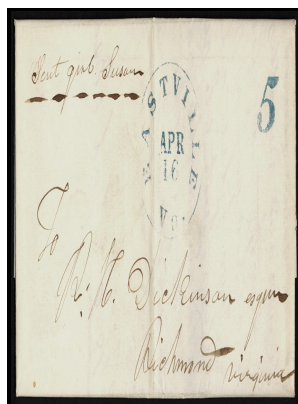 Sent girl Susan
EASTVILLE
APR
16
Va.
5
To
R. H. Dickinson esqr
Richmond
virginia